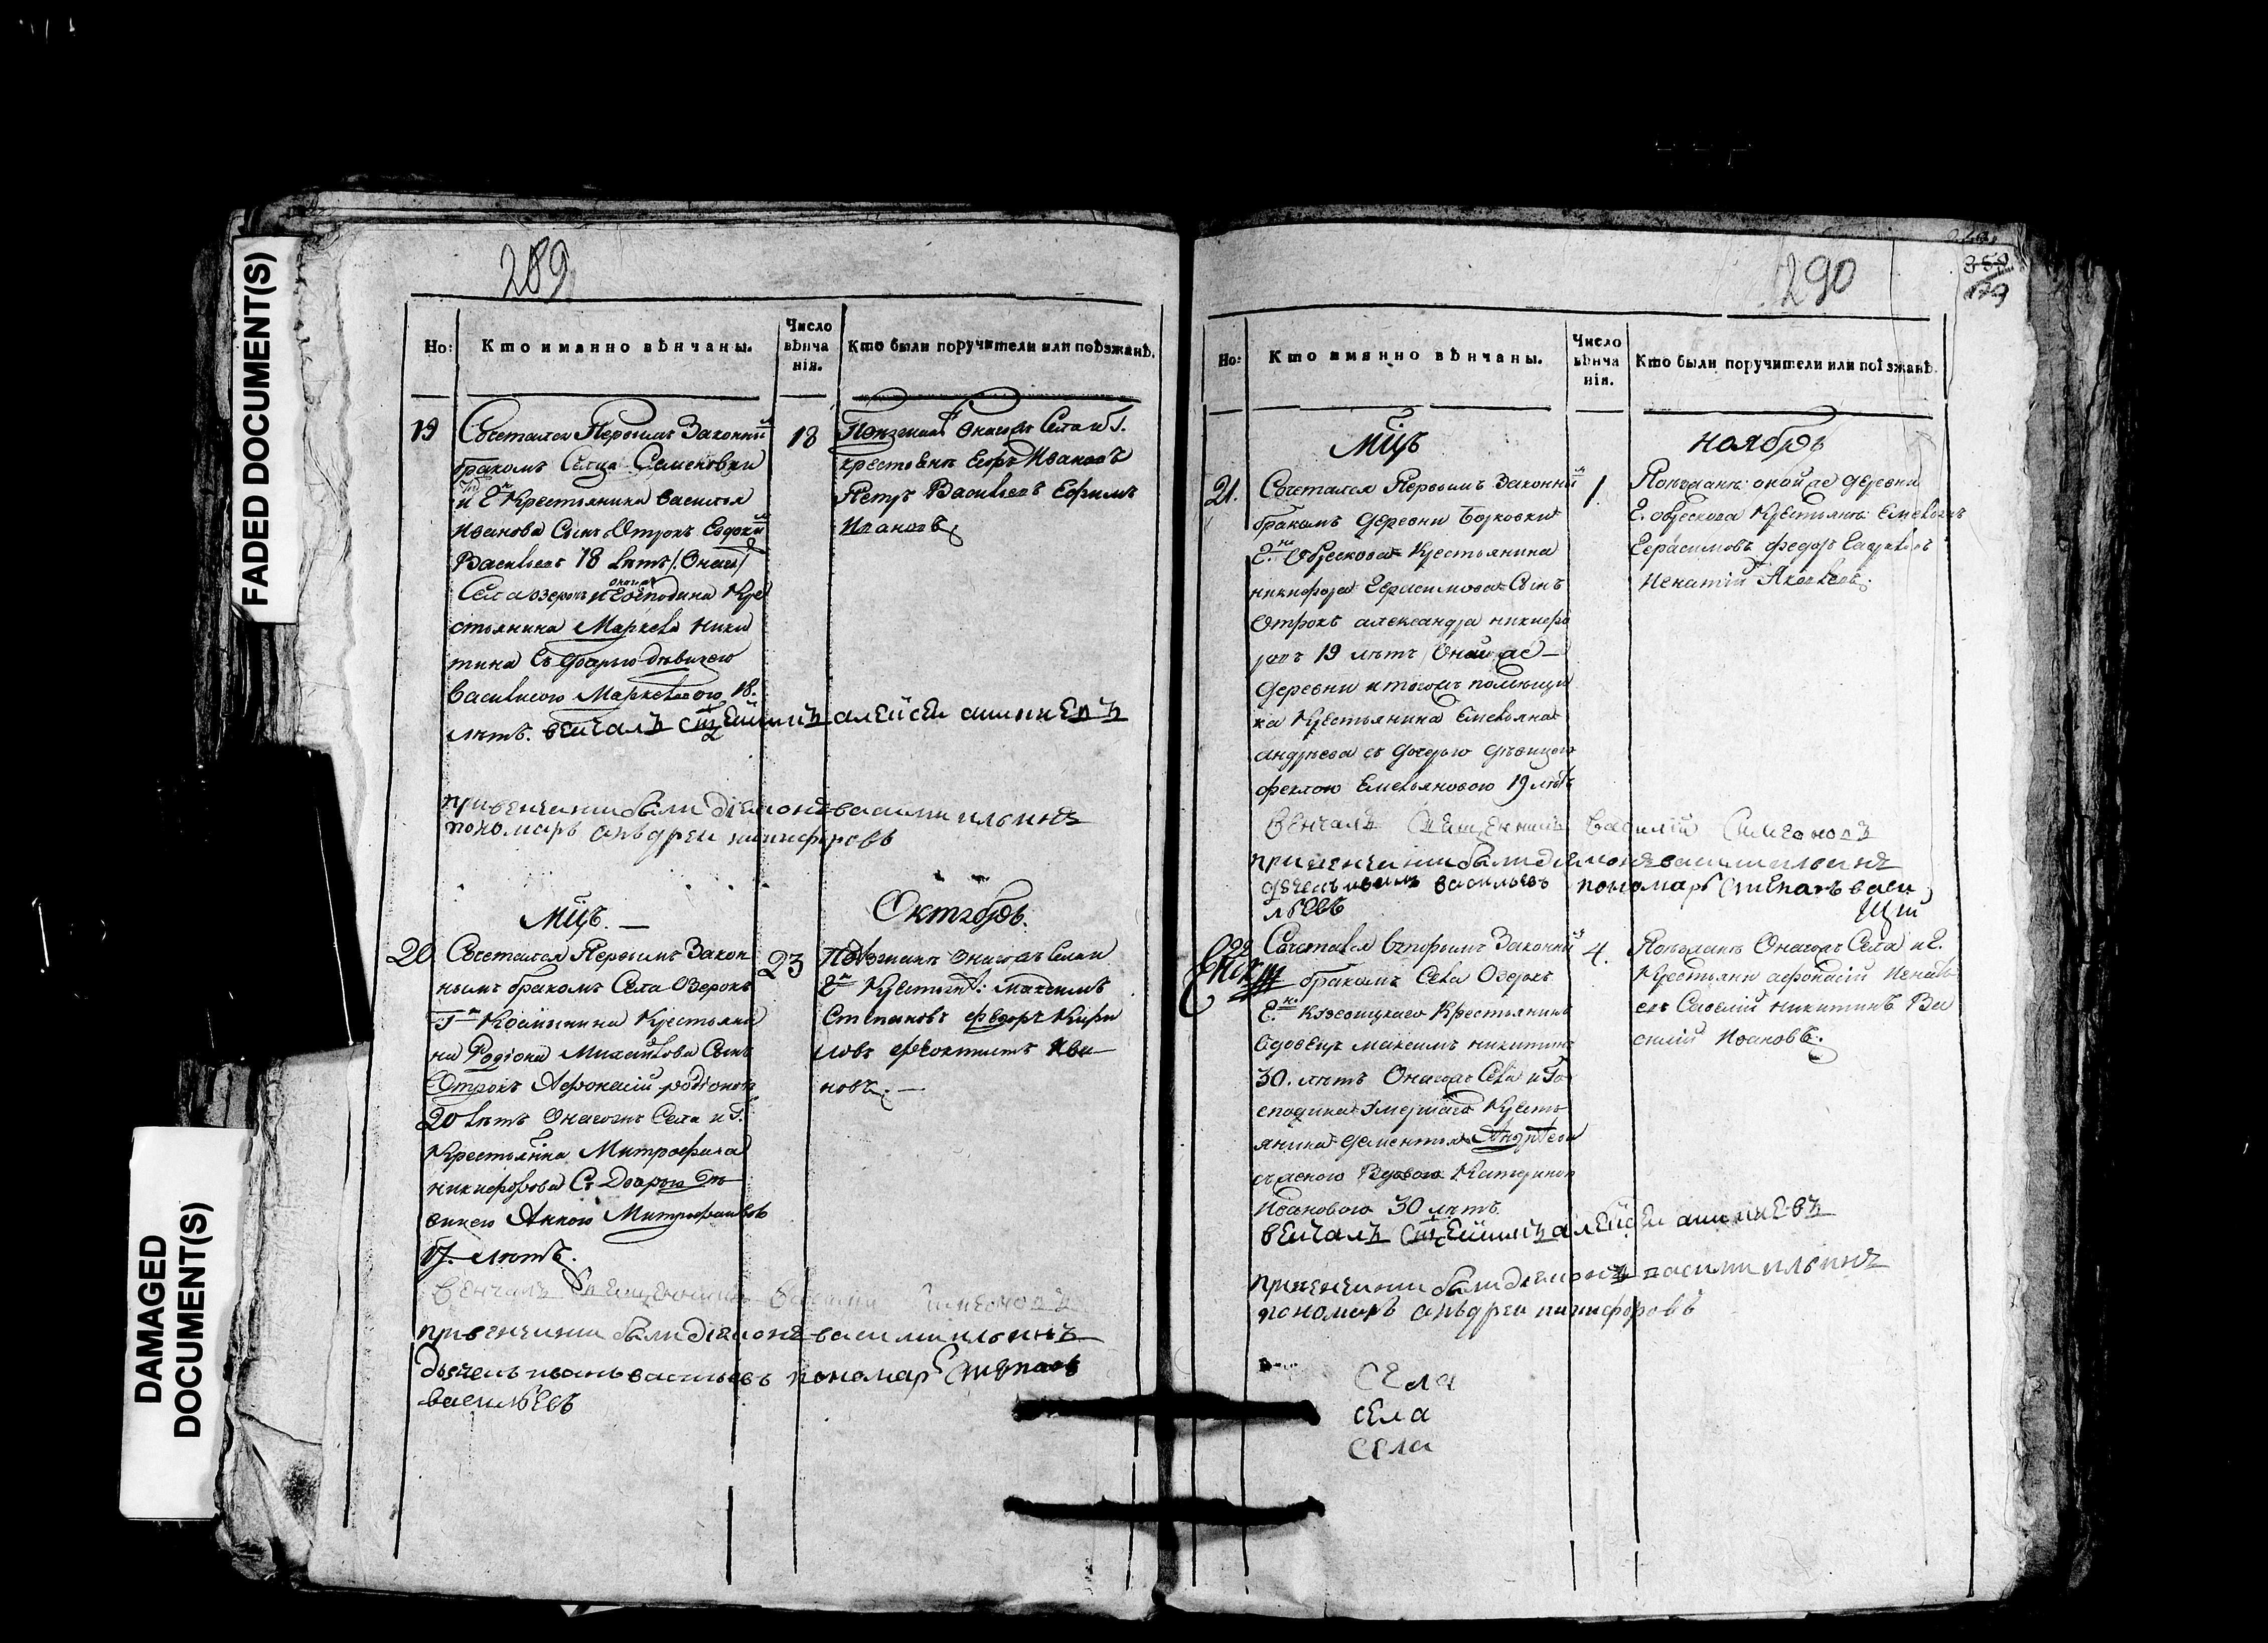 FADED DOCUMENT(S)
DAMAGED
DOCUMENT(S)
289
Но: Кто имянно вѣнчаны. Число вѣнча нія. Кто были поручители или поѣзжанѣ.
19 Сочетался Первымъ Законны 18
бракомъ Сельца Семеновки
и Гн Крестьянина василья
Иванова Сынъ Отрокъ Евдоки
Васильевъ 18 лѣтъ
Села озерокъ и Господина Кре
стьянина Маркела Ники
тина съ дочерью дѣвицею
Василисою Маркеловою 18.
лѣтъ.
Поезжанѣ Онагожъ Села и Г.
крестьянѣ Егоръ Ивановъ
Петръ Васильевъ Ефимъ
Ивановъ
при венчании были диаконъ василий ильинъ
пономарь андреи никифоровъ
Мцъ. Октябрь.
20 Сочетался Первымъ Закон 23
нымъ бракомъ Села Озерокъ
Крестьяни
на Родіона Михайлова Сынъ
Отрокъ Афонасій родіоновъ
20 лѣтъ Онагожъ Села и Г.
Крестьянина Митрофана
никифорова Съ Дочерью дѣ
вицею Анною Митрофановою
17. лѣтъ.
Поѣзжанѣ Онагожъ Села и
Гн Крестьянѣ: Максимъ
Степановъ федоръ
ловъ феоктистъ Ива
новъ.
венчалъ священникъ василий симеоновъ
при венчании были диаконъ василий ильинъ
дьячекъ иванъ васильевъ пономарь степанъ
васильевъ
290
359
179
Но: Кто имянно вѣнчаны. Число вѣнча нія. Кто были поручители или поѣзжанѣ.
Мцъ ноябрь
21. Сочетался Первымъ Законны 1.
бракомъ деревни
Г.на Обрескова Крестьянина
никифора Герасимова Сынъ
Отрокъ александръ никифо
ровъ 19 лѣтъ Онойже
деревни и тогожъ помѣщи
ка Крестьянина Емельяна
андреева съ дочерью дѣвицею
феклою Емельяновою 19 лѣтъ
Поѣзжанѣ: онойже деревни
Г. обрескова Крестьянѣ: Емельянъ
Герасимовъ федоръ
Игнатій Яковлевъ.
венчалъ священникъ василий симеоновъ
при венчании были диаконъ василий ильинъ
дьячекъ иванъ васильевъ пономарь степанъ васи
льевъ
22 Сочетался вторымъ Законны 4.
бракомъ Села Озерокъ
Г.на Крестьянинъ
вдовецъ максимъ никитинъ
30. лѣтъ Онагожъ Села и Го
сподина Умершаго Кресть
янина дементья Андреева
съ женою Вдовою Катериною
Ивановою 30 лѣтъ
Поѣзжанѣ Онагожъ Села и Г.
Крестьяни афонасій Игнать
евъ Савелій никитинъ Ва
силій Ивановъ.
при венчании были диаконъ василий ильинъ
пономарь андреи никифоровъ
села
села
села